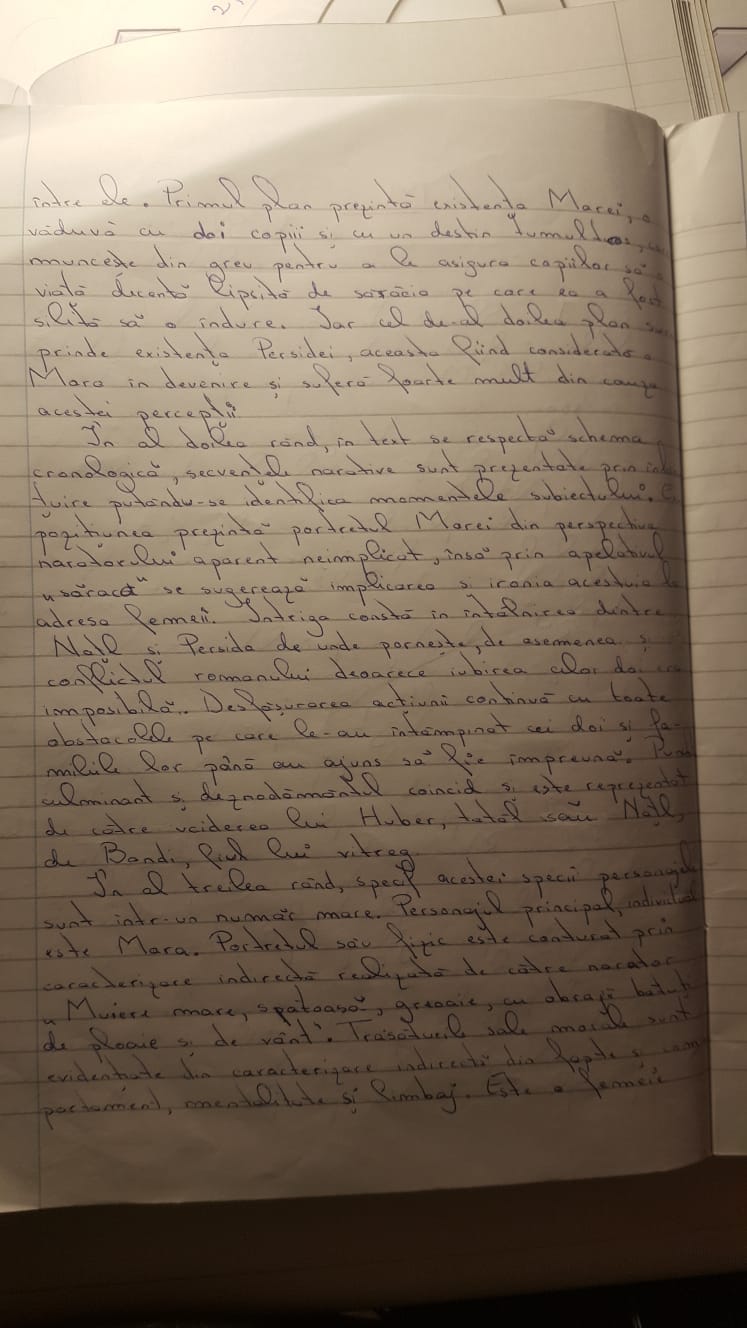 între ele. Primul plan prezintă existența Marei, o
văduvă cu doi copiii și cu un destin tumultuos, ce
muncește din greu pentru a le asigura copiilor săi o
viață decentă lipsită de sărăcia pe care ea a fost
silită să o îndure. Iar cel de-al doilea plan su
prinde existența Persidei, aceasta fiind considerată o
Mara în devenire și suferă foarte mult din cauza
acestei percepții.
În al doilea rând, în text se respectă schema
cronologică, secvențele narative sunt prezentate prin înlă
țuire putându-se identifica momentele subiectului. Ex
pozițiunea prezintă portretul Marei din perspectiva
naratorului aparent neimplicat, însă prin apelativul
„săraca" se sugerează implicarea și ironia acestuia la
adresa femeii. Intriga constă în întâlnirea dintre
Națl și Persida de unde pornește, de asemenea și
conflictul romanului deoarece iubirea celor doi era
imposibilă. Desfășurarea acțiunii continuă cu toate
obstacolele pe care le-au întâmpinat cei doi și fa-
miliile lor până au ajuns să fie împreună. Punctul
culminant și deznodământul coincid și este reprezentat
de către uciderea lui Huber, tatăl său Națl,
de Bandi, fiul lui vitreg.
În al treilea rând, specif acestei specii personajele
sunt într-un număr mare. Personajul principal, individual
este Mara. Portretul său fizic este conturat prin
caracterizare indirectă realizată de către narator
„Muiere mare, spătoasă, greoaie, cu obrajii bătuți
de ploaie și de vânt". Trăsăturile sale morale sunt
evidențiate din caracterizare indirectă din fapte și com
portament, mentalitate și limbaj. Este o femeie